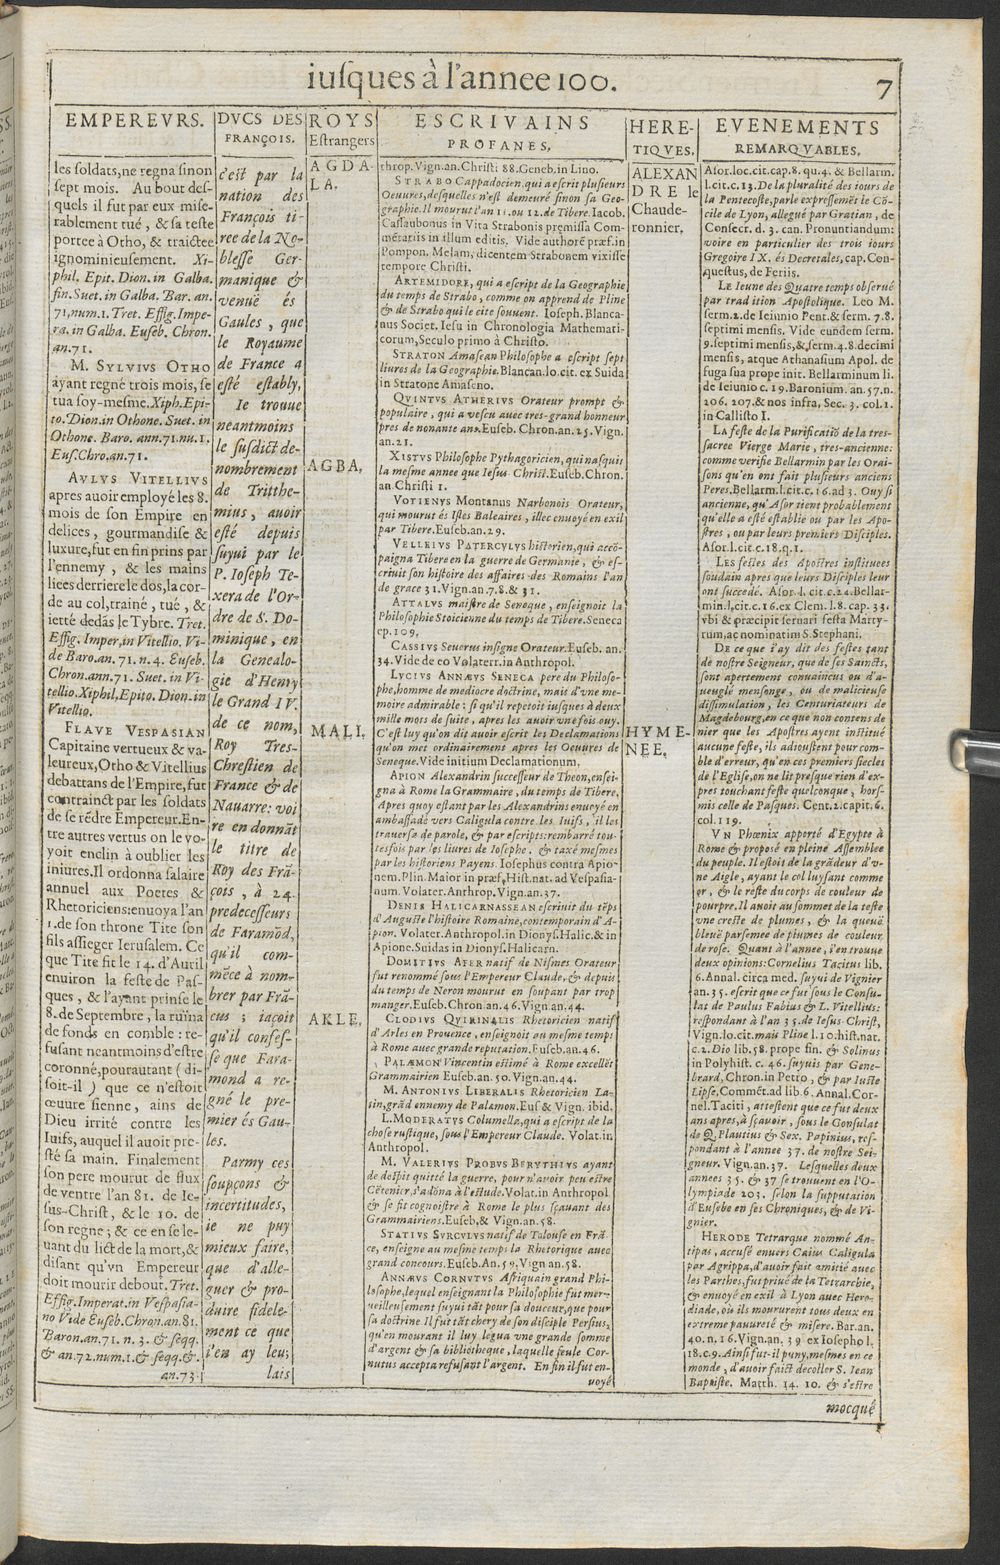 iusques à l'annee 100.
7
EMPEREVRS.
les soldats, ne regna sinon
sept mois. Au bout des-
quels il fut par eux mise-
rablement tué, & sa teste
portee à Otho, & traictee
ignominieusement. Xi-
phil. Epit. Dion. in Galba.
fin. Suet. in Galba. Bar. an.
71, num. 1. Tret. Effig. Impe-
ra. in Galba. Euseb. Chron.
an. 71.
M. SYLVIVS OTHO
ayant regné trois mois, se
tua soy-mesme. Xiph. Epi-
to. Dion. in Othone. Suet. in
Othone. Baro. ann. 71. nu. 1.
Eus. Chro. an. 71.
AVLVS VITELLIVS
apres auoir employé les 8.
mois de son Empire en
delices, gourmandise &
luxure, fut en fin prins par
l'ennemy, & les mains
liees derriere le dos, la cor-
de au col, trainé, tué, &
ietté dedãs le Tybre. Tret.
Effig. Imper. in Vitellio. Vi-
de Baro. an. 71. n. 4. Euseb.
Chron. ann. 71. Suet. in Vi-
tellio. Xiphil, Epito. Dion. in
Vitellio.
FLAVE VESPASIAN
Capitaine vertueux & va-
leureux, Otho & Vitellius
debattans de l'Empire, fut
contrainct par les soldats
de se rédre Empereur. En-
tre autres vertus on le vo-
yoit enclin à oublier les
iniures. Il ordonna salaire
annuel aux Poetes &
Rhetoriciens: enuoya l'an
1. de son throne Tite son
fils assieger Ierusalem. Ce
que Tite fit le 14. d'Auril
enuiron la feste de Pas-
ques, & l'ayant prinse le
8. de Septembre, la ruïna
de fonds en comble: re-
fusant neantmoins d'estre
coronné, pourautant (di-
soit-il) que ce n'estoit
œuure sienne, ains de
Dieu irrité contre les
Iuifs, auquel il auoit pre-
sté sa main. Finalement
son pere mourut de flux
de ventre l'an 81. de Ie-
sus-Christ, & le 10. de
son regne; & ce en se le-
uant du lict de la mort, &
disant qu'vn Empereur
doit mourir debout. Tret.
Effig. Imperat. in Vespasia-
no Vide Euseb. Chron. an. 81.
Baron. an. 71. n. 3. & seqq.
& an. 72. num. 1. & seqq. &.
an. 73.
DVCS DES
FRANÇOIS.
c'est par la
nation des
François ti-
ree de la No-
blesse Ger-
manique &
venuë és
Gaules, que
le Royaume
de France a
esté estably,
Ie trouue
neantmoins
le susdict de-
nombrement
de Tritthe-
mius, auoir
esté depuis
suyui par le
P. Ioseph Te-
xera de l'Or-
dre de S. Do-
minique, en
la Genealo-
gie d'Henry
le Grand IV.
de ce nom,
Roy Tres-
Chrestien de
France & de
Nauarre: voi
re en donnãt
le titre de
Roy des Frã-
çois, à 24.
predecesseurs
de Faramõd,
qu'il com-
mẽce à nom-
brer par Frã-
cus; iaçoit
qu'il confes-
se que Fara-
mond a re-
gné le pre-
mier és Gau-
les.
Parmy ces
soupçons &
incertitudes,
ie ne puy
mieux faire,
que d'alle-
guer & pro-
duire fidele-
ment ce que
i'en ay leu;
lais
ROYS
Estrangers
AGDA-
LA.
AGBA,
MALI.
AKLE.
ESCRIVAINS
PROFANES.
throp. Vign. an. Christi 88. Geneb. in Lino.
STRABO Cappadocien, qui a escrit plusieurs
Oeuures, desquelles n'est demeuré sinon sa Geo-
graphie. Il mourut l'an 11. ou 12. de Tibere. Iacob.
Cassaubonus in Vita Strabonis præmissa Com-
métariis in illum editis. Vide authoré præf. in
Pompon. Melam, dicentem Strabonem vixisse
tempore Christi.
ARTEMIDORE, qui a escript de la Geographie
du temps de Strabo, comme on apprend de Pline
& de Strabo qui le cite souuent. Ioseph. Blanca-
nus Societ. Iesu in Chronologia Mathemati-
corum, Seculo primo à Christo.
STRATON Amasean Philosophe a escript sept
liures de la Geographie. Blancan. lo. cit. ex Suida
in Stratone Amaseno.
QVINTVS ATHERIVS Orateur prompt &
populaire, qui a vescu auec tres-grand honneur
pres de nonante ans. Euseb. Chron. an. 25. Vign.
an. 21.
XISTVS Philosophe Pythagoricien, qui nasquit
la mesme annee que Iesus Christ. Euseb. Chron.
an. Christi 1.
VOTIENVS Montanus Narbonois Orateur,
qui mourut és Isles Baleaires, illec enuoyé en exil
par Tibere. Euseb. an. 29.
VELLEIVS PATERCVLVS historien, qui accõ-
paigna Tibere en la guerre de Germanie, & es-
criuit son histoire des affaires des Romains l'an
de grace 31. Vign. an. 7. 8. & 31.
ATTALVS maistre de Seneque, enseignoit la
Philosophie Stoicienne du temps de Tibere. Seneca
ep. 109,
CASSIVS Seuerus insigne Orateur. Euseb. an.
34. Vide de eo Volaterr. in Anthropol.
LVCIVS ANNÆVS SENECA pere du Philoso-
phe, homme de mediocre doctrine, mais d'vne me-
moire admirable: si qu'il repetoit iusques à deux
mille mots de suite, apres les auoir vne fois ouy.
C'est luy qu'on dit auoir escrit les Declamations
qu'on met ordinairement apres les Oeuures de
Seneque. Vide initium Declamationum.
APION Alexandrin successeur de Theon, ensei-
gna à Rome la Grammaire, du temps de Tibere,
Apres quoy estant par les Alexandrins enuoyé en
ambassade vers Caligula contre les Iuifs, il les
trauersa de parole, & par escripts: rembarré tou-
tesfois par les liures de Iosephe, & taxé mesmes
par les historiens Payens. Iosephus contra Apio-
nem. Plin. Maior in præf. Hist. nat. ad Vespasia-
num. Volater. Anthrop. Vign. an. 37.
DENIS HALICARNASSEAN escriuit du tẽps
d'Auguste l'histoire Romaine, contemporain d'A-
pion. Volater. Anthropol. in Dionys. Halic. & in
Apione. Suidas in Dionys. Halicarn.
DOMITIVS AFER natif de Nismes Orateur
fut renommé sous l'Empereur Claude, & depuis
du temps de Neron mourut en soupant par trop
manger. Euseb. Chron. an. 46. Vign. an. 44.
CLODIVS QVIRINALIS Rhetoricien natif
d'Arles en Prouence, enseignoit au mesme temps
à Rome auec grande reputation. Euseb. an. 46.
PALÆMON Vincentin estimé à Rome excellẽt
Grammairien Euseb. an. 50. Vign. an. 44.
M. ANTONIVS LIBERALIS Rhetoricien La-
tin, grãd ennemy de Palæmon. Eus & Vign. ibid.
L. MODERATVS Columella, qui a escript de la
chose rustique, sous l'Empereur Claude. Volat. in
Anthropol.
M. VALERIVS PROBVS BERYTHIVS ayant
de despit quitté la guerre, pour n'auoir peu estre
Cẽtenier, s'adõna à l'estude. Volat. in Anthropol
& se fit cognoistre à Rome le plus sçauant des
Grammairiens. Euseb, & Vign. an. 58.
STATIVS SVRCVLVS natif de Tolouse en Frã
ce, enseigne au mesme temps la Rhetorique auec
grand concours. Euseb. An. 59. Vign an. 58.
ANNÆVS CORNVTVS Afriquain grand Phi-
losophe, lequel enseignant la Philosophie fut mer-
ueilleusement suyui tãt pour sa douceur, que pour
sa doctrine Il fut tãt chery de son disciple Persius,
qu'en mourant il luy legua vne grande somme
d'argent & sa bibliotheque, laquelle seule Cor-
nutus accepta refusant l'argent. En fin il fut en-
uoyé
HERE-
TIQVES.
ALEXAN
DRE le
Chaude-
ronnier,
HYME-
NEE,
EVENEMENTS
REMARQVABLES,
Asor. loc. cit. cap. 8. qu. 4. & Bellarm.
l. cit. c. 13. De la pluralité des iours de
la Pentecoste, parle expressemẽt le Cõ-
cile de Lyon, allegué par Gratian, de
Consecr. d. 3. can. Pronuntiandum:
voire en particulier des trois iours
Gregoire IX. és Decretales, cap. Con-
questus, de Feriis.
LE Ieune des Quatre temps obserué
par tradition Apostolique. Leo M.
serm. 2. de Ieiunio Pent. & serm. 7. 8.
septimi mensis. Vide eundem serm.
9. septimi mensis, & serm. 4. 8. decimi
mensis, atque Athanasium Apol. de
fuga sua prope init. Bellarminum li.
de Ieiunio c. 19. Baronium. an. 57. n.
206. 207. & nos infra, Sec. 3. col. 1.
in Callisto I.
LA feste de la Purificatiõ de la tres-
sacree Vierge Marie, tres-ancienne:
comme verifie Bellarmin par les Orai-
sons qu'en ont fait plusieurs anciens
Peres. Bellarm. l. cit. c. 16. ad 3. Ouy si
ancienne, qu'Asor tient probablement
qu'elle a esté establie ou par les Apo-
stres, ou par leurs premiers Disciples.
Asor. l. cit. c. 18. q. 1.
LES festes des Apostres instituees
soudain apres que leurs Disciples leur
ont succedé. Asor. l. cit. c. 24. Bellar-
min. l, cit. c. 16. ex Clem. l. 8. cap. 33.
vbi & præcipit seruari festa Marty-
rum, ac nominatim S. Stephani.
DE ce que i'ay dit des festes tant
de nostre Seigneur, que de ses Saincts,
sont apertement conuaincus ou d'a-
ueuglé mensonge, ou de malicieuse
dissimulation, les Centuriateurs de
Magdebourg, en ce que non contens de
nier que les Apostres ayent institué
aucune feste, ils adioustent pour com-
ble d'erreur, qu'en ces premiers siecles
de l'Eglise, on ne lit presque rien d'ex-
pres touchant feste quelconque, hors-
mis celle de Pasques. Cent. 2. capit. 6.
col. 119.
VN Phœnix apporté d'Egypte à
Rome & proposé en pleine Assemblee
du peuple. Il estoit de la grãdeur d'v-
ne Aigle, ayant le col luysant comme
or, & le reste du corps de couleur de
pourpre. Il auoit au sommet de la teste
vne creste de plumes, & la queuë
bleuë parsemee de plumes de couleur
de rose. Quant à l'annee, i'en trouue
deux opinions: Cornelius Tacitus lib.
6. Annal. circa med. suyui de Vignier
an. 35. escrit que ce fut sous le Consu-
lat de Paulus Fabius & L. Vitellius:
respondant à l'an 35. de Iesus-Christ,
Vign. lo. cit. mais Pline l. 10. hist. nat.
c. 2. Dio lib. 58. prope fin. & Solinus
in Polyhist. c. 46. suyuis par Gene-
brard, Chron. in Petro, & par Iuste
Lipse, Commẽt. ad lib. 6. Annal. Cor-
nel. Taciti, attestent que ce fut deux
ans apres, à sçauoir, sous le Consulat
de Q. Plautius & Sex. Papinius, res-
pondant à l'annee 37. de nostre Sei-
gneur. Vign. an. 37. Lesquelles deux
annees 35. & 37 se trouuent en l'O-
lympiade 203. selon la supputation
d'Eusebe en ses Chroniques, & de Vi-
gnier.
HERODE Tetrarque nommé An-
tipas, accusé enuers Caius Caligula
par Agrippa, d'auoir fait amitié auec
les Parthes, fut priué de la Tetrarchie,
& enuoyé en exil à Lyon auec Hero-
diade, où ils moururent tous deux en
extreme pauureté & misere. Bar. an.
40. n. 16. Vign. an. 39 ex Iosepho l.
18. c. 9. Ainsi fut-il puny, mesmes en ce
monde, d'auoir faict decoller S. Iean
Baptiste. Matth. 14. 10. & s'estre
mocqué